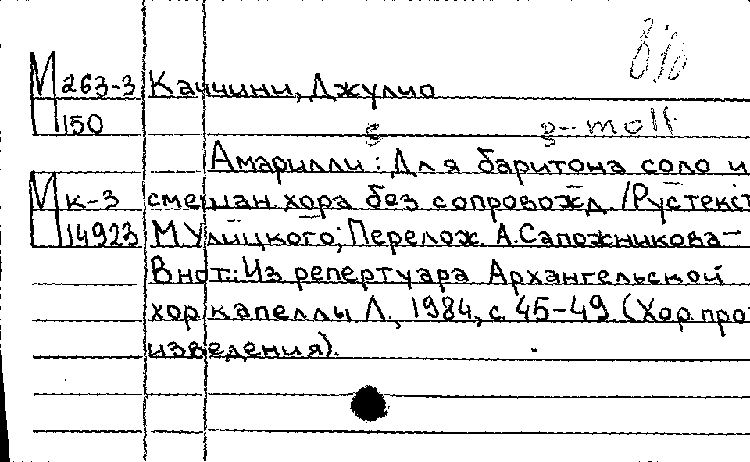 М 263-3 Каччини, Джулио
150
g-moll
Амарилли: Для баритона соло и
М к-3 смешан. хора без сопровожд. /Рус текст
14923 М Улицкого; Перелож. А. Сапожникова –
В нот.: Из репертуара Архангельской
хор капеллы Л., 1984, с 45-49 (Хор про-
изведения).